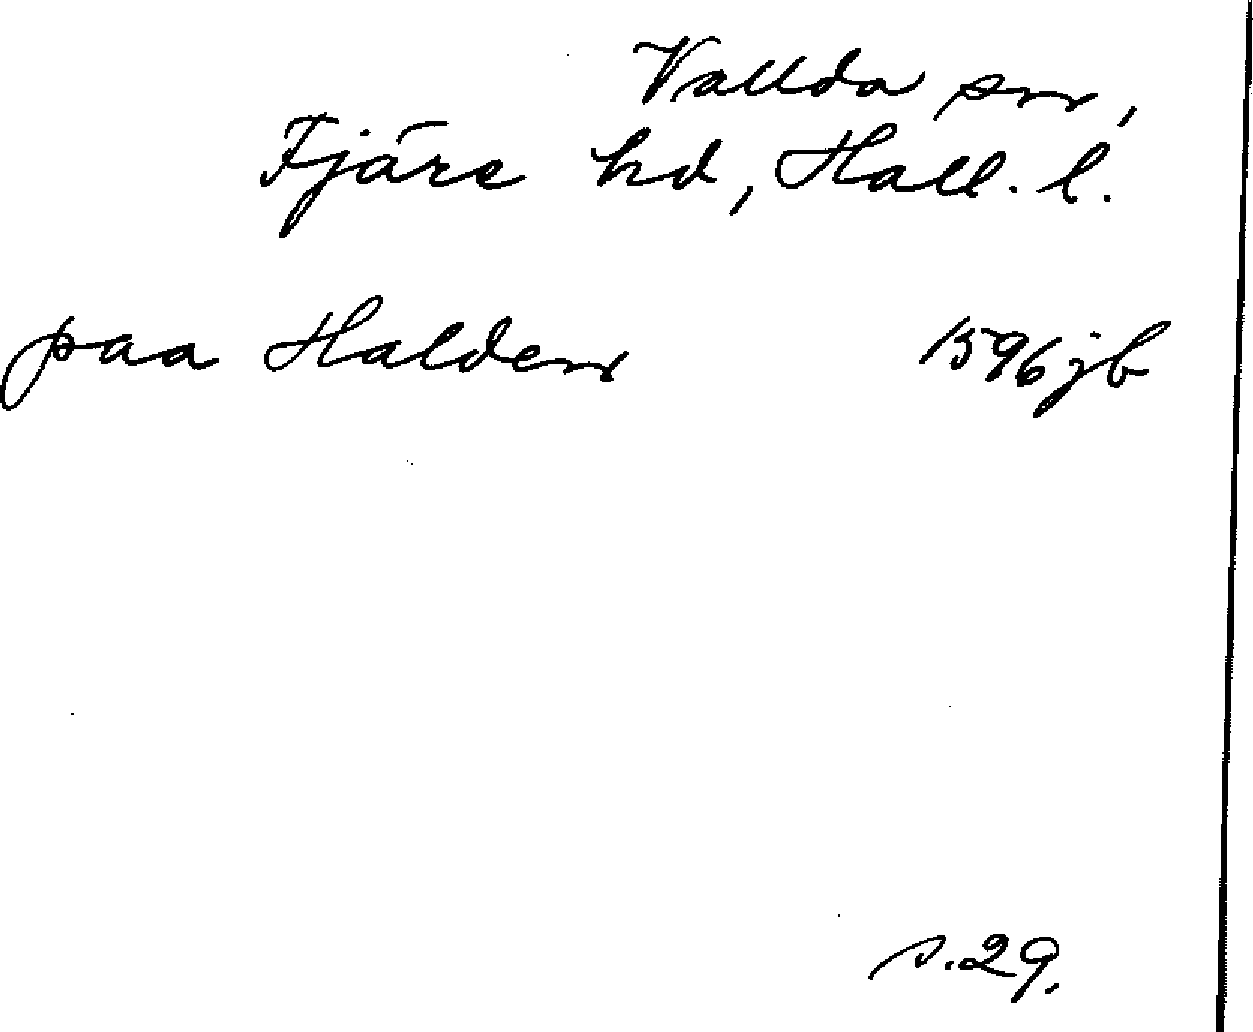 Vallda sn,
Fjäre hd, Hall. l.
paa Halden 1596 jb
s. 29.